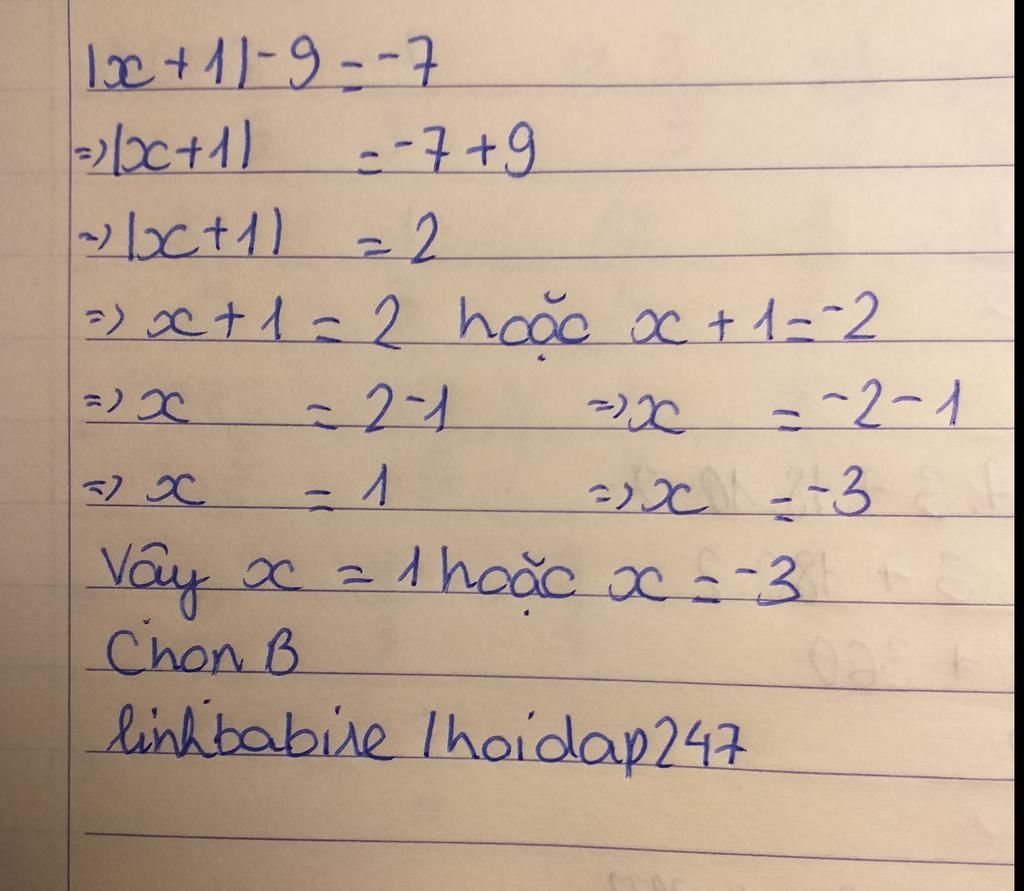 |x + 1| - 9 = -7
=> |x+1| = -7 + 9
=> |x+1| = 2
=> x + 1 = 2 hoặc x + 1 = -2
=> x = 2 - 1 => x = -2 - 1
=> x = 1 => x = -3
Vậy x = 1 hoặc x = -3
Chọn B
linhbabie /hoidap247